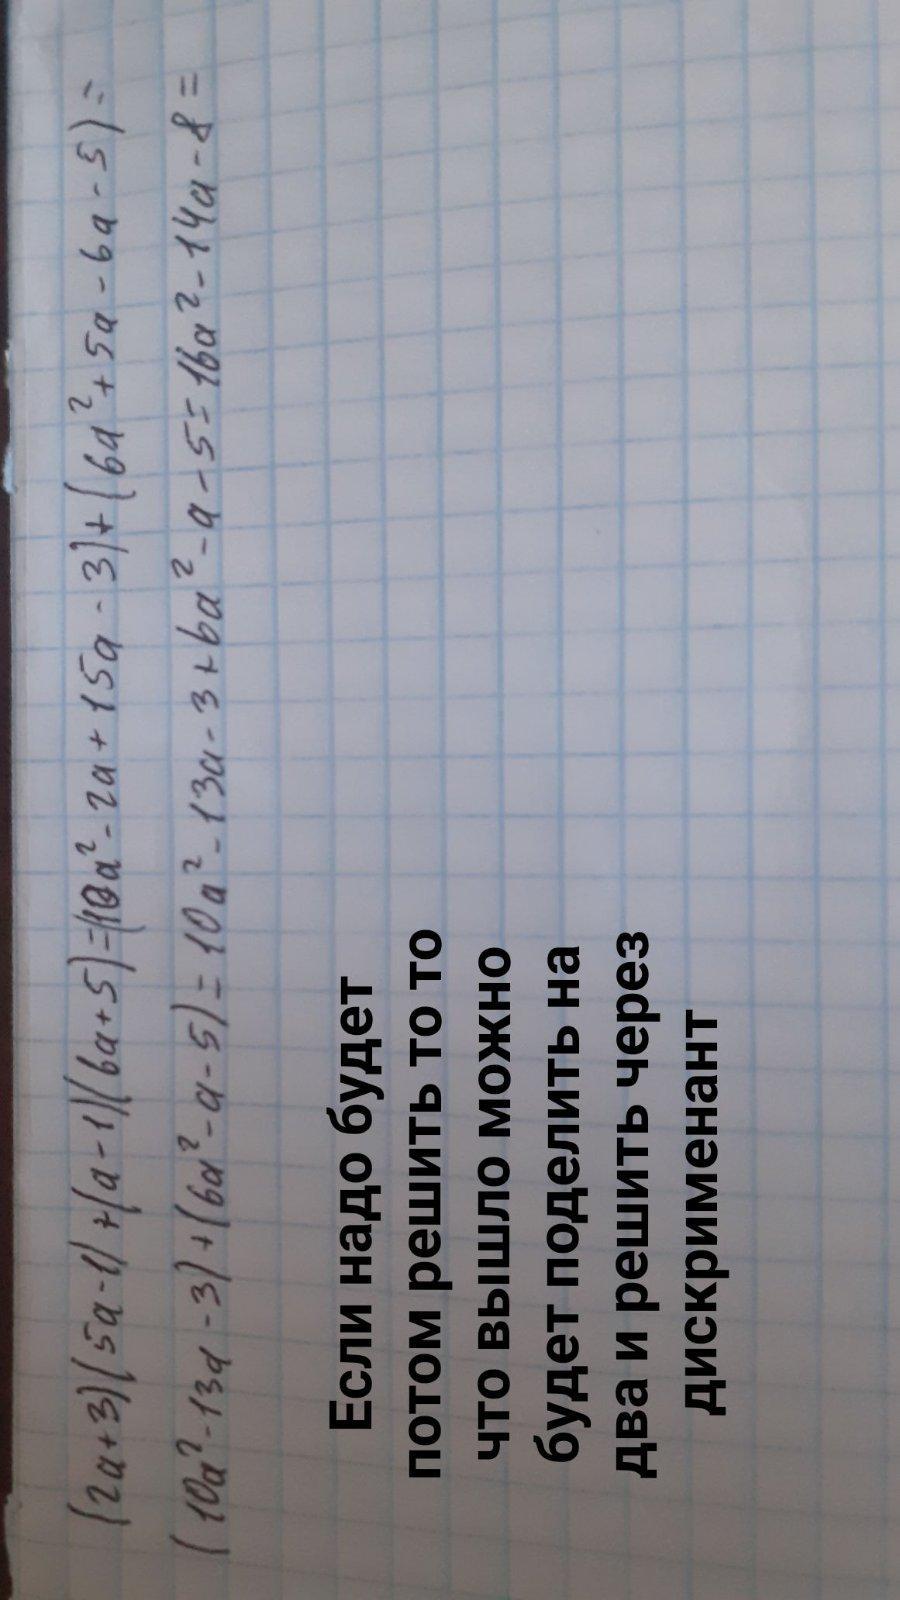 (2a+3)(5a-1)+(a-1)(6a+5)=(10a²-2a+15a-3)+(6a²+5a-6a-5)=
(10a²-13a-3)+(6a²-a-5)=10a²-13a-3+6a²-a-5=16a²-14a-8=
Если надо будет
потом решить то то
что вышло можно
будет поделить на
два и решить через
дискрименант